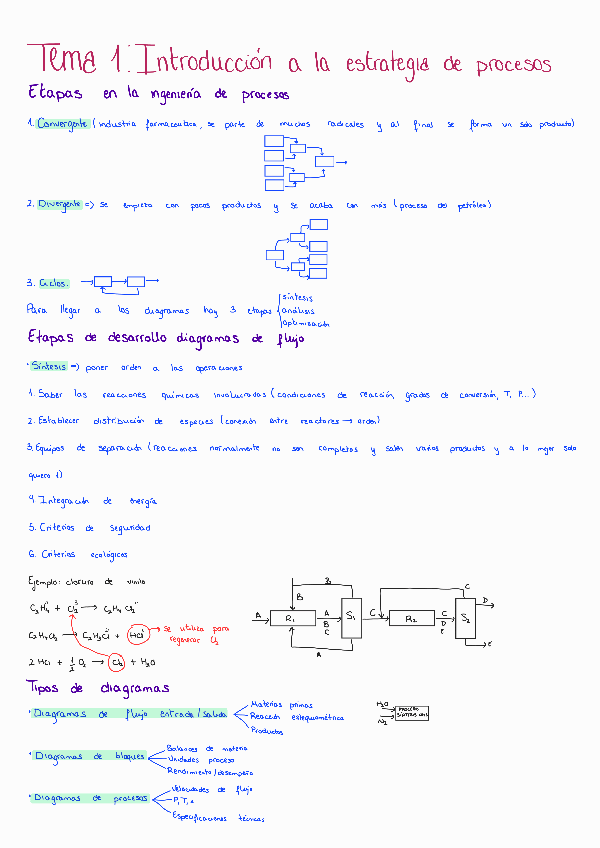 Tema 1: Introducción a la estrategia de procesos
Etapas en la ingeniería de procesos
1. Convergente (industria farmaceutica, se parte de muchos radicales y al final se forma un solo producto)
2. Divergente => se empieza con pocos productos y se acaba con más (proceso del petróleo)
3. Ciclos.
Para llegar a los diagramas hay 3 etapas
síntesis
análisis
optimización
Etapas de desarrollo diagramas de flujo
· Síntesis => poner orden a las operaciones
1. Saber las reacciones químicas involucradas (condiciones de reacción, grados de conversión, T, P...)
2. Establecer distribución de especies (conexión entre reactores → orden)
3. Equipos de separación (reacciones normalmente no son completas y salen varios productos y a lo mejor solo
quiero 1)
4. Integración de energía
5. Criterios de seguridad
6. Criterios ecológicos
Ejemplo: cloruro de vinilo
B
B
A
R1
A
B
C
S1
C
R2
C
D
E
S2
C
D
E
A
→ C2H4Cl2
C2H4Cl2 → C2H3Cl + HCl
→ se utiliza para
regenerar
2 HCl + 1/2 O2 → Cl2 + H2O
Tipos de diagramas
· Diagramas de flujo entrada/salida
Materias primas
Reacción estequiométrica
Productos
H2O
N2
PROCESO
· Diagramas de bloques
Balances de materia
Unidades proceso
Rendimiento/desempeño
· Diagramas de procesos
Velocidades de flujo
P, T,
Especificaciones técnicas